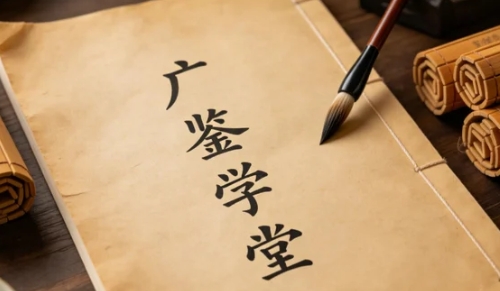 广鉴学堂